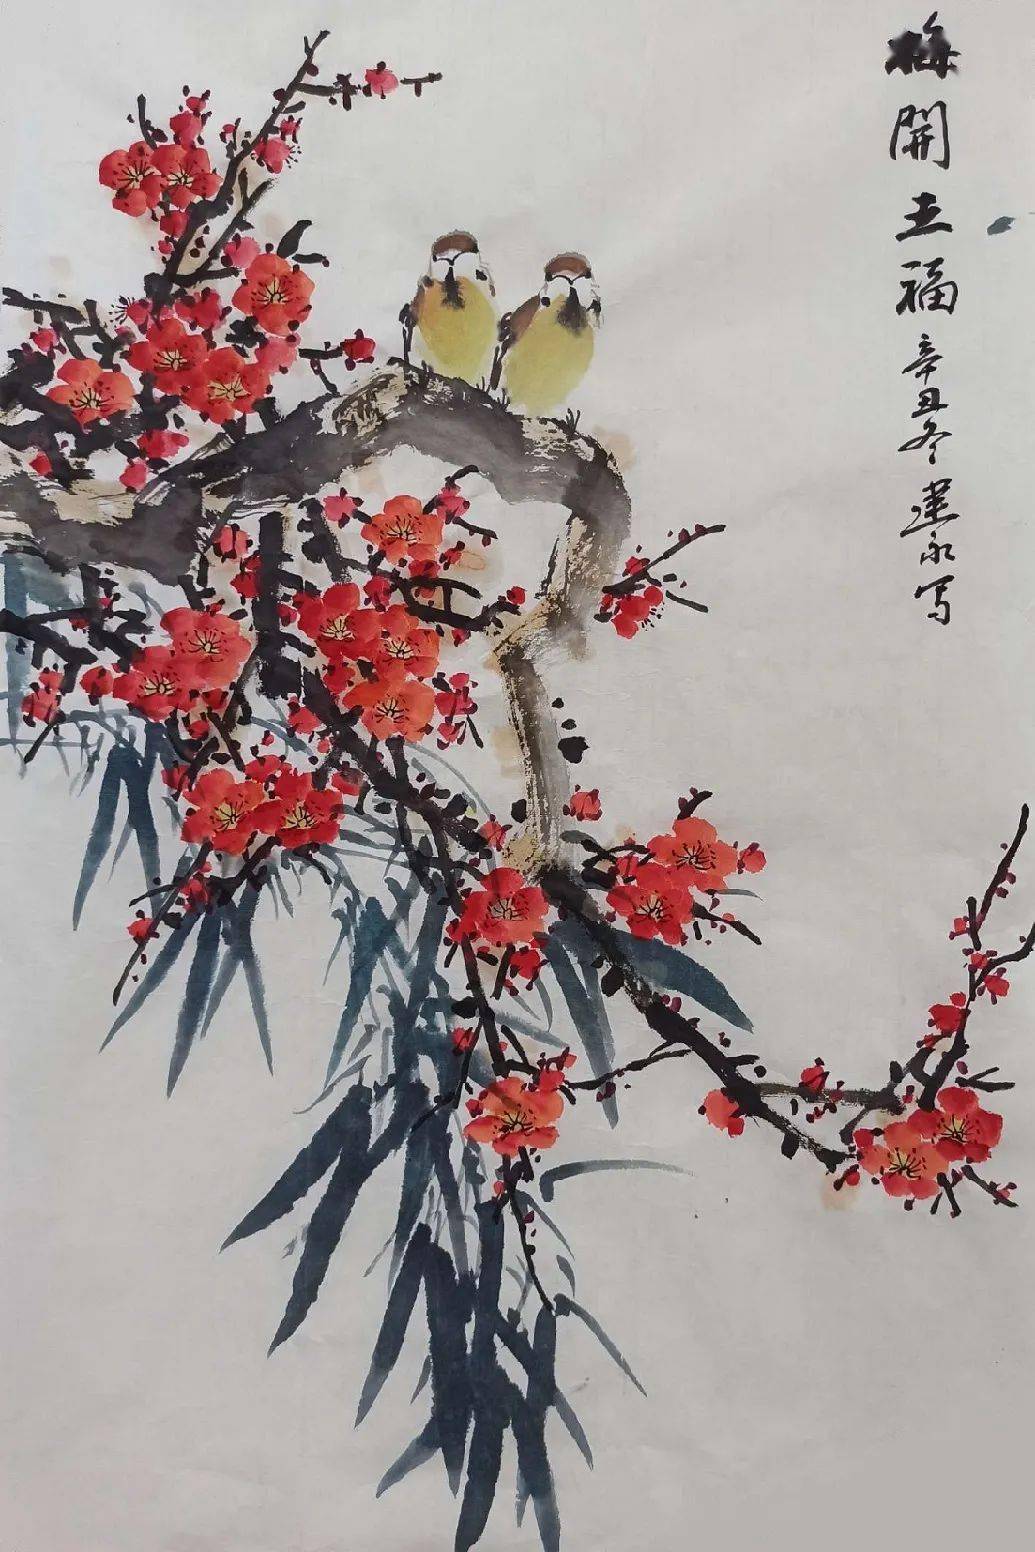 梅開五福辛丑冬建永写